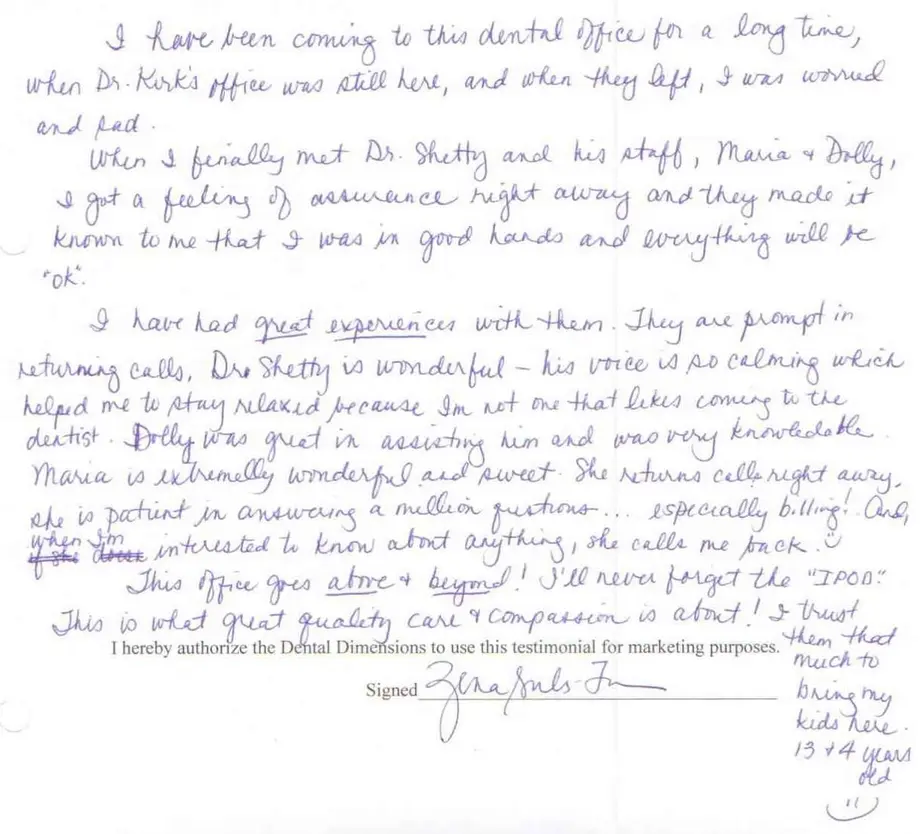 I have been coming to this dental office for a long time,
when Dr. Kirk's office was still here, and when they left, I was worried
and sad.
When I finially met Dr. Shetty and his staff, Maria & Dolly,
I got a feeling of assurance right away and they made it
known to me that I was in good hands and everything will be
"ok".
I have had great experiences with them. They are prompt in
returning calls, Dr. Shetty is wonderful – his voice is so calming which
helped me to stay relaxed because Im not one that likes coming to the
dentist. Dolly was great in assisting him and was very knowledable.
Maria is extremelly wonderful and sweet. She returns calls right away,
she is patient in answering a million qustions... especially billing! And,
when I'm
interested to know about anything, she calls me back.
This office goes above & beyond! I'll never forget the "IPOD".
This is what great quality care & compassion is about! I trust
them that
much to
bring my
kids here.
13 & 4 years
old
I hereby authorize the Dental Dimensions to use this testimonial for marketing purposes.
Signed